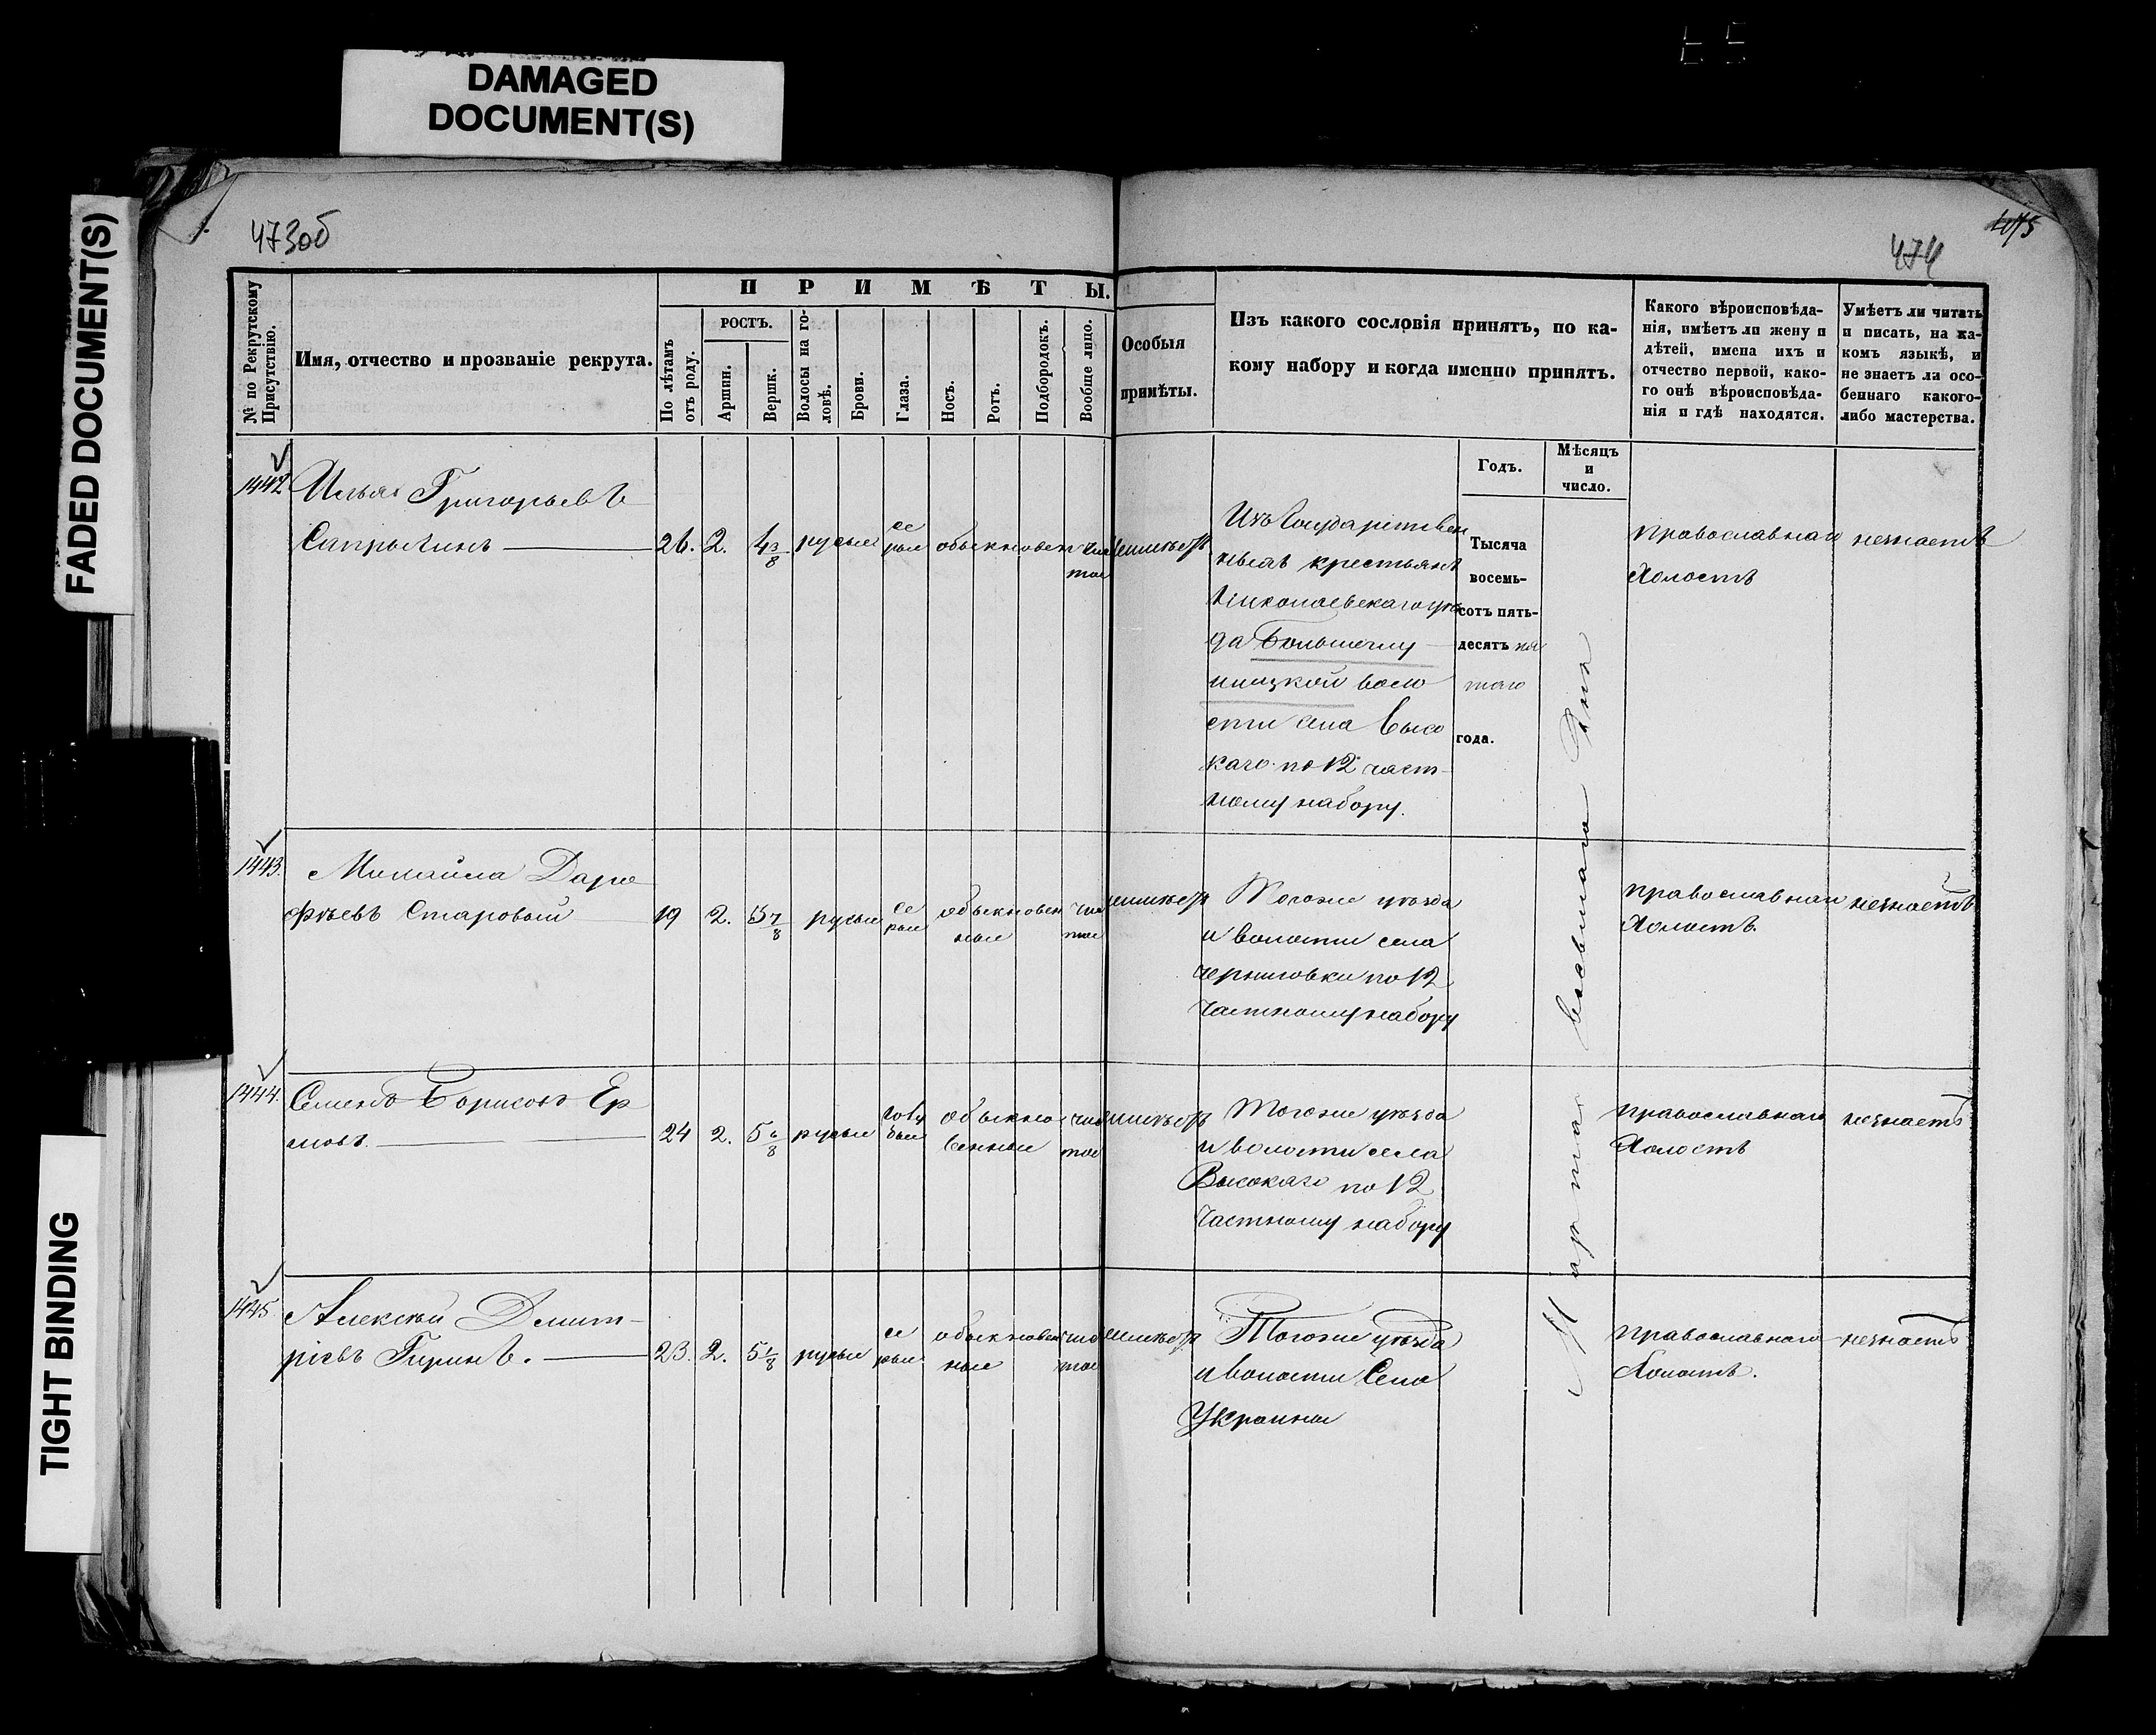 DAMAGED
DOCUMENT(S)
FADED DOCUMENT(S)
TIGHT BINDING
473об
474
№ по Рекрутскому
Присутствію.
Имя, отчество и прозваніе рекрута.
ПРИМѢТЫ.
По лѣтамъ
отъ роду.
РОСТЪ.
Аршин.
Вершк.
Волосы на го-
ловѣ.
Брови.
Глаза.
Носъ.
Ротъ.
Подбородокъ.
Вообще лицо.
Особыя
примѣты.
Изъ какого сословія принятъ, по ка-
кому набору и когда именно принятъ.
Годъ.
Мѣсяцъ
и
число.
Какого вѣроисповѣда-
нія, имѣетъ ли жену и
дѣтей, имена ихъ и
отчество первой, како-
го онѣ вѣроисповѣда-
нія и гдѣ находятся.
Умѣетъ ли читать
и писать, на ка-
комъ языкѣ, и
не знаетъ ли осо-
беннаго какого-
либо мастерства.
1442
Илья Григорьевъ
26. 2. 4 3/8 русые се
рые обыкновен чис
тое неимѣетъ
Изъ Государствен
ныхъ крестьянъ
Николаевскаго уѣз
да
волости села Высо
каго по 12 част-
ному набору.
Тысяча
восемь-
сотъ пять-
десятъ пя
таго
года.
Марта восьмаго дня
православнаго
Холостъ
незнаетъ
1443.
Михайла Доро
фѣевъ Старовой
19 2. 5 7/8 русые се
рые обыкновен
ные чис
тое неимѣетъ
Тогоже уѣзда
и волости села
Черниговки по 12
частному набору
православнаго
Холостъ.
незнаетъ
1444.
Семенъ Борисовъ Ер
моовъ.
24 2. 5 6/8 русые голу
бые обыкно
венные чис
тое неимѣетъ
Тогоже уѣзда
и волости села
Высокаго по 12
частному набору
православнаго
Холостъ
незнаетъ
1445
Алексѣй Дмит-
ріевъ Гиринъ.
23. 2. 5 1/8 русые се
рые обыкновен
ные чис
тое неимѣетъ
Тогоже уѣзда
и волости Села
Украинки
православнаго
Холостъ.
незнаетъ